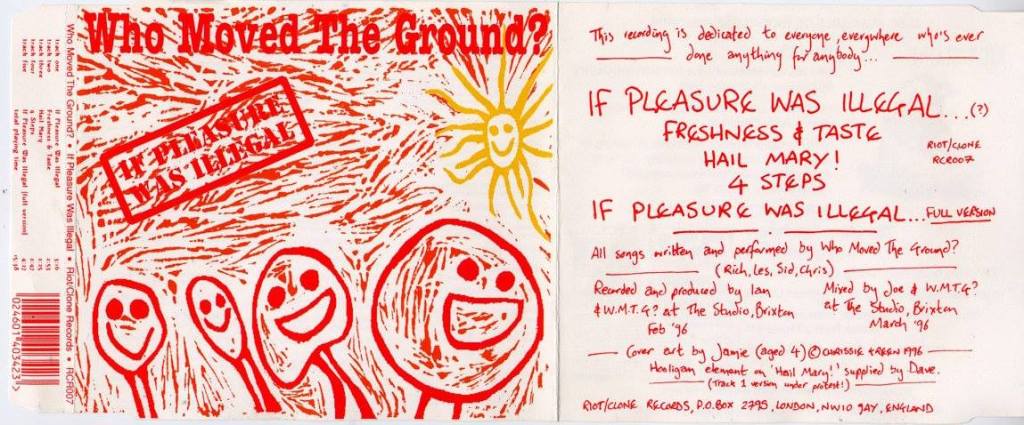 Who Moved The Ground?
IF PLEASURE
WAS ILLEGAL
Who Moved The Ground? • If Pleasure Was Illegal • Riot/Clone Records • RCR007
track one If Pleasure Was Illegal
track two Freshness & Taste 2:53
track three Hail Mary
track four 4 Steps
track five If Pleasure Was Illegal (full version)
total playing time
This recording is dedicated to everyone, everywhere who's ever
done anything for anybody...
IF PLEASURE WAS ILLEGAL...(?)
FRESHNESS & TASTE
HAIL MARY!
4 STEPS
RIOT/CLONE
RCR007
IF PLEASURE WAS ILLEGAL...FULL VERSION
All songs written and performed by Who Moved The Ground?
(Rich, Les, Sid, Chris)
Recorded and produced by Ian
& W.M.T.G? at The Studio, Brixton
Feb '96
Mixed by Joe & W.M.T.G?
at The Studio, Brixton
March '96
Cover art by Jamie (aged 4) © CHRISSIE GREEN 1996
Hooligan element on 'Hail Mary!' supplied by Dave.
(Track 1 version under protest!)
RIOT/CLONE RECORDS, P.O.BOX 2795, LONDON, NW10 9AY, ENGLAND